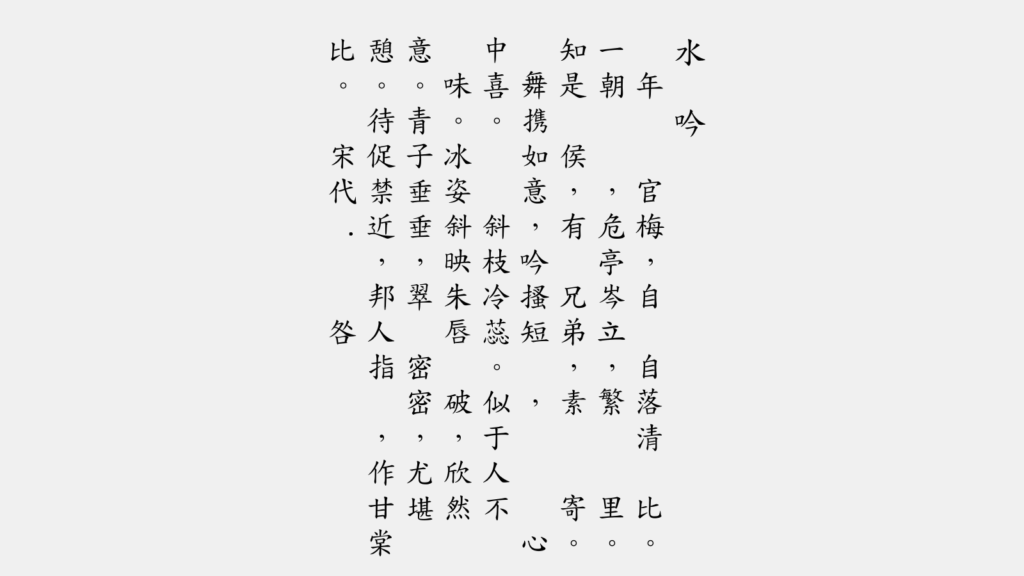 水 吟
年 官梅，自 自落清 比。
一朝 ，危亭岑立，繁 里。
知是 侯，有 兄弟，素 寄。
舞携如意，吟搔短 ， 心
中喜。 斜枝冷蕊。似于人不
味。冰姿斜映朱唇 破，欣然
意。青子垂垂，翠 密密，尤堪
憩。待促禁近，邦人指 ，作甘棠
比。 宋代． 咎